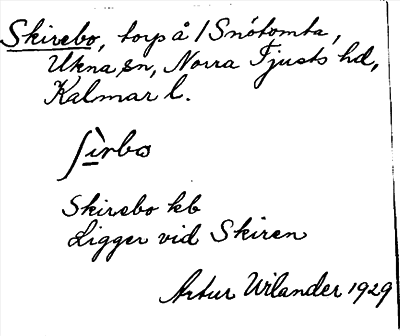 Skirebo, torp å /Snötomta,
Ukna sn, Norra Tjusts hd,
Kalmar l.
ʃìrbω
Skirebo kb
Ligger vid Skiren
Artur Wilander 1929